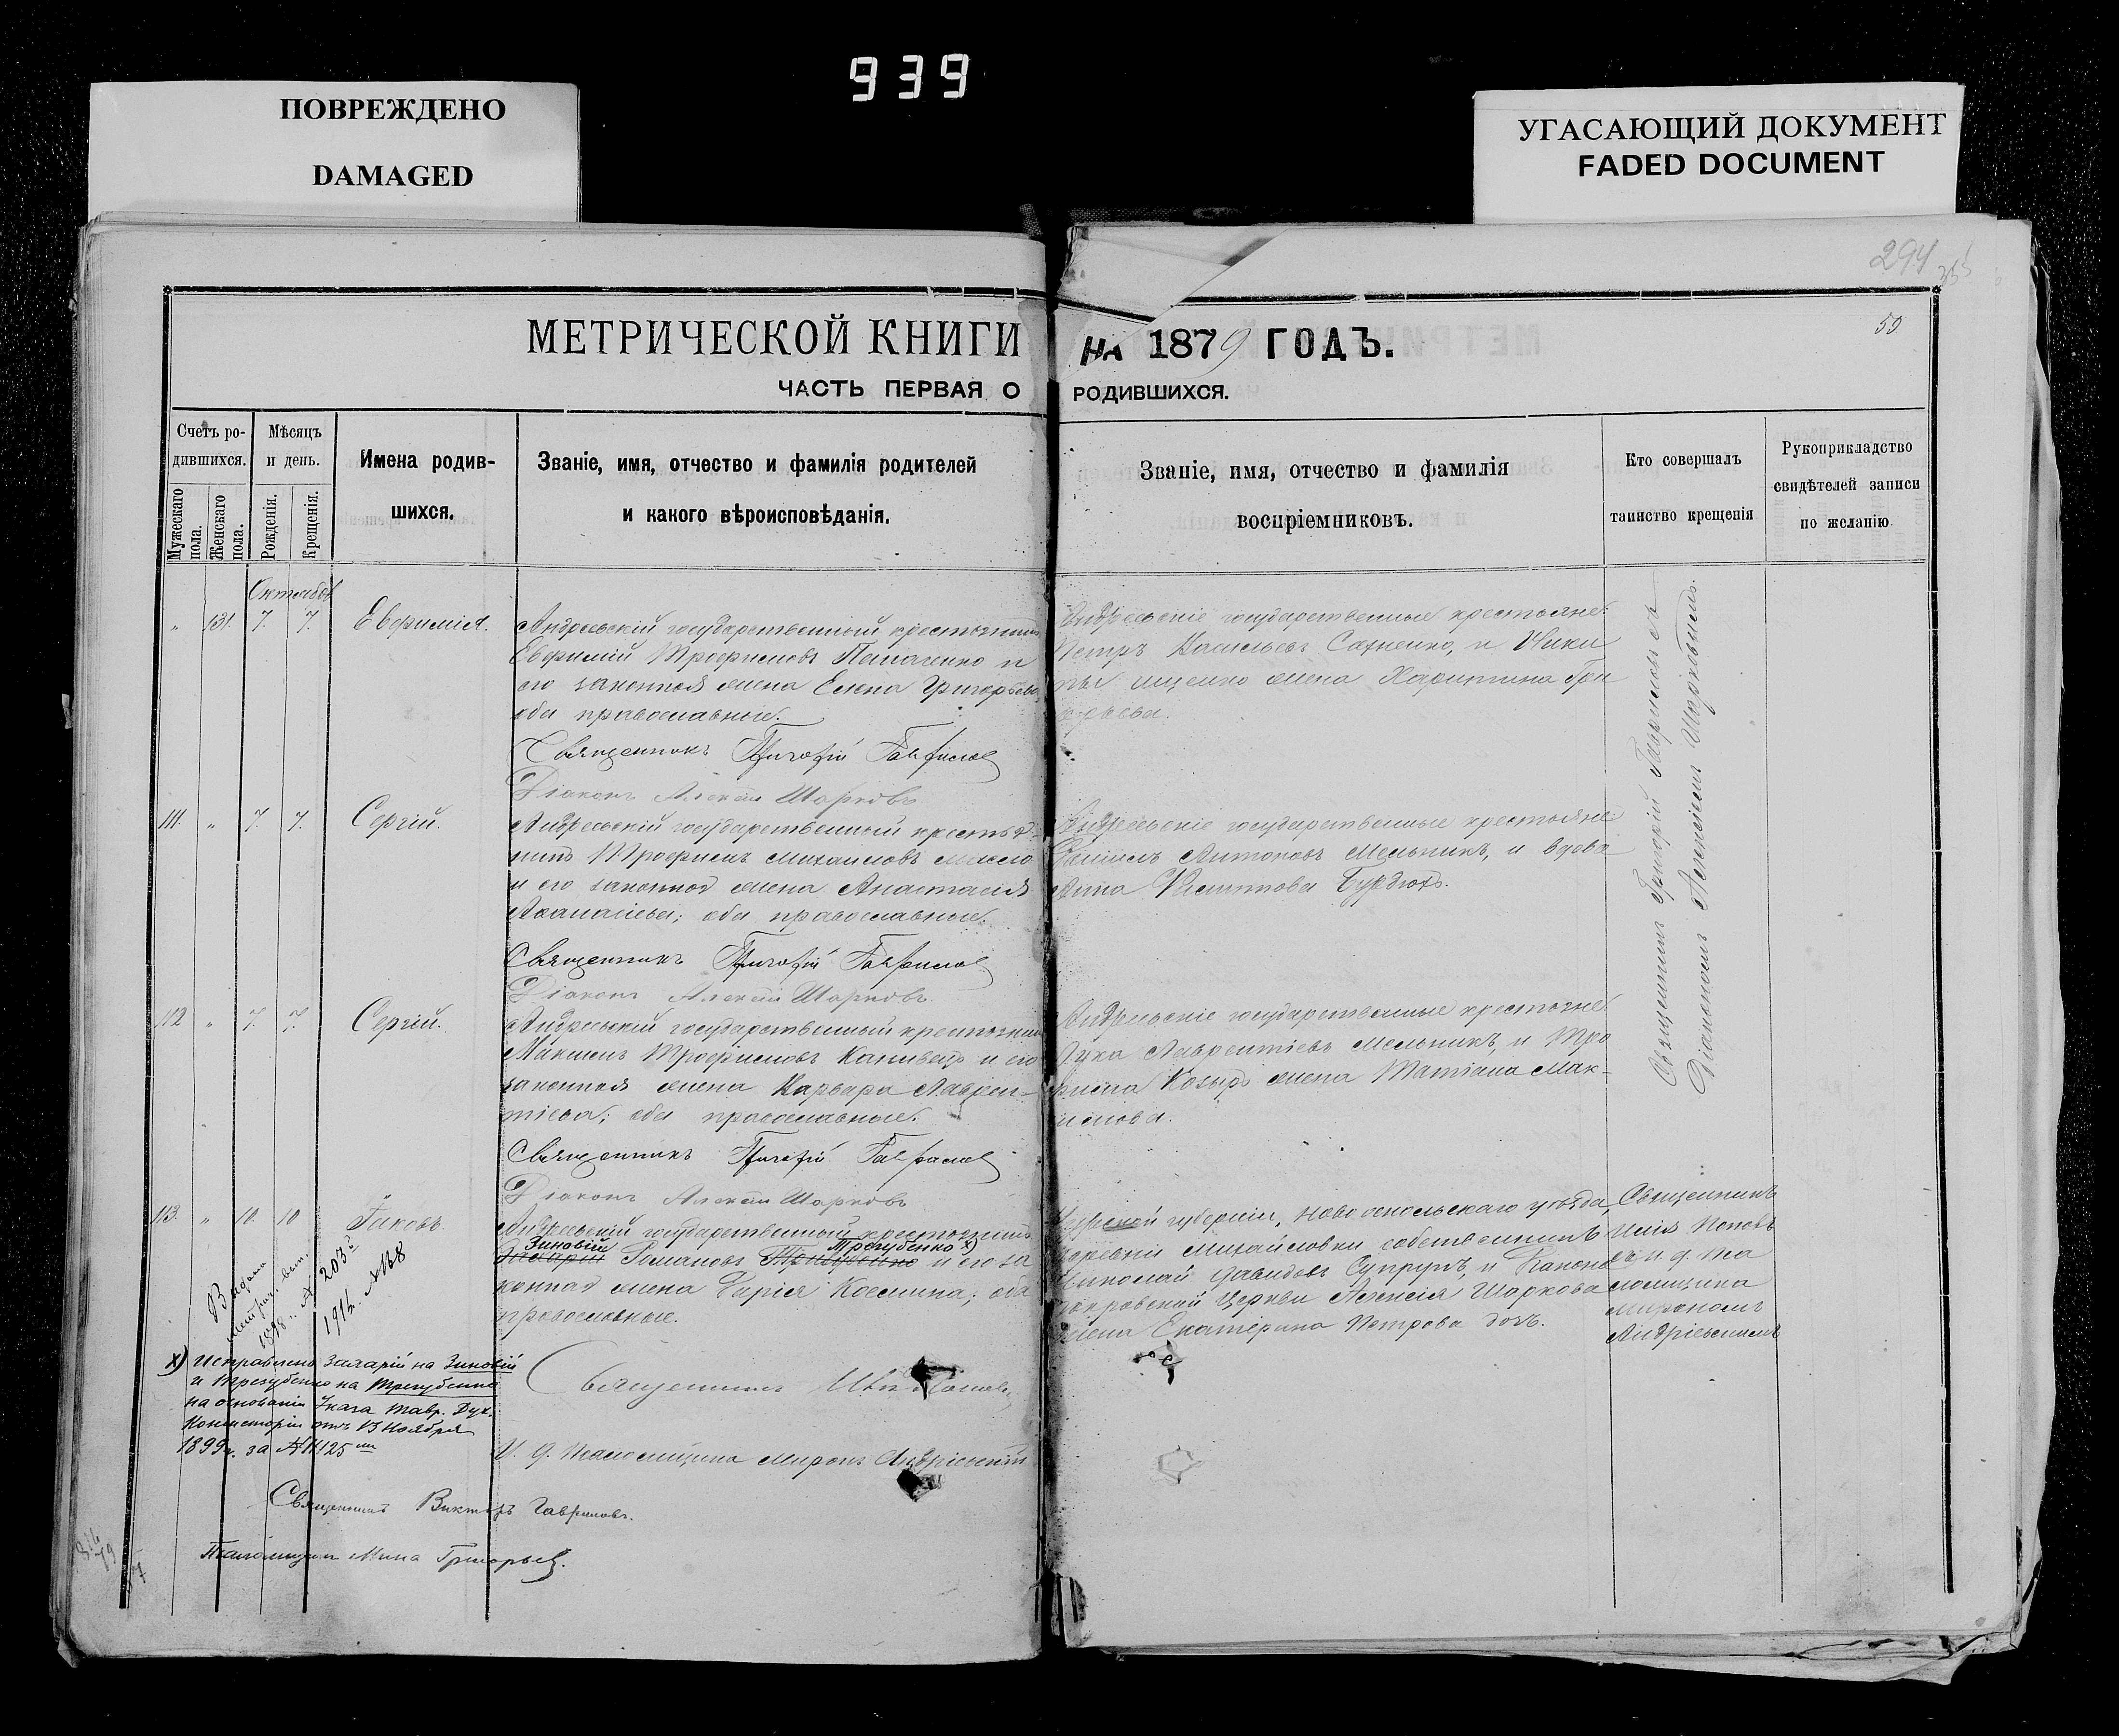 939
ПОВРЕЖДЕНО
DAMAGED
УГАСАЮЩИЙ ДОКУМЕНТ
FADED DOCUMENT
294
50
МЕТРИЧЕСКОЙ КНИГИ НА 1879 ГОДЪ.
ЧАСТЬ ПЕРВАЯ О РОДИВШИХСЯ.
Счетъ ро-
дившихся.
Мужескаго пола.
Женскаго пола.
Мѣсяцъ
и день.
Рожденія.
Крещенія.
Имена родив-
шихся.
Званіе, имя, отчество и фамилія родителей
и какого вѣроисповѣданія.
Званіе, имя, отчество и фамилія
воспріемниковъ.
Кто совершалъ
таинство крещенія
Рукоприкладство
свидѣтелей записи
по желанію.
" 131. 7. 7. Евфимія.
Андреевскій государственный крестьянинъ
Евфимій Трофимовъ и
его законная жена Елена Григорьева,
оба православные.
Священникъ Григорій Гаврилов
Діаконъ Алексій Шарковъ
Андреевскіе государственные крестьяне:
Петръ Васильевъ и Ники
жена Харитина Гри
горьева.
111. " 7. 7. Сергій.
Андреевскій государственный крестья-
нинъ Трофимъ Михайловъ
и его законная жена Анастасія
Аѳанасіева; оба православные.
Священникъ Григорій Гаврилов
Діаконъ Алексій Шарковъ
Андреевскіе государственные крестьяне
Даніилъ Антоновъ Мельникъ, и вдова
Анна
112 " 7. 7. Сергій.
Андреевскій государственный крестьянинъ
Максимъ Трофимовъ и его
законная жена Варвара Лаврен-
тіева; оба православные.
Священникъ Григорій Гаврилов
Діаконъ Алексій Шарковъ
Андреевскіе государственные крестьяне
Лука Лаврентіевъ Мельникъ, и Тро
фима Козыръ жена Татіана Мак-
симова.
Священникъ Григорій Гавриловъ съ
Діакономъ Алексіемъ Шарковымъ.
113. " 10. 10 Іаковъ.
Андреевскій государственный крестьянинъ
Зиновій Трегубенко х)
Романовъ и его за
конная жена Дарія Космина; оба
православные.
губерніи, Новооскольскаго уѣзда,
деревни Михайловки собственникъ
Николай Давидовъ Супрунъ, и
покровской Церкви Алексія Шаркова
жена Екатерина Петрова дочь.
Священникъ
Илія Поповъ
съ и. д. пса
ломщика
Мирономъ
Андріевскимъ
Выдана
метрич. вып.
1898 г. № 203
1914. №138
х) Исправлено Захарій на Зиновій
и на Трегубенко
на основаніи Указа Тавр. Дух.
Консисторіи отъ 13 Ноября
1899 г. за № 11125
Священникъ Илія Поповъ
И. д. псаломщика Миронъ Андріевскій
Священникъ Викторъ Гавриловъ.
Псаломщикъ Мина Григорьев.